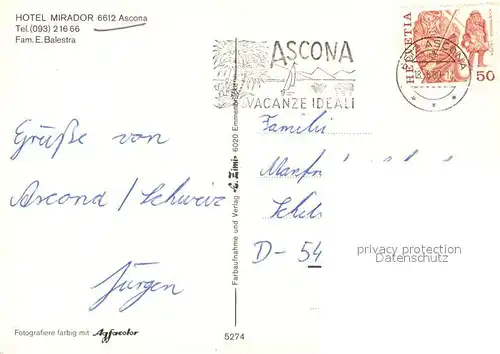 HOTEL MIRADOR 6612 Ascona
Tel.(093) 2 16 66
Fam. E. Balestra
ASCONA
VACANZE IDEALI
ASCONA
HELVETIA
50
Grüße von
Ascona / Schweiz
Jürgen
Familie
Manfr
D - 54
privacy protection
Datenschutz
Farbaufnahme und Verlag E. Zimi 6020 Emmenbrücke
Fotografiere farbig mit Agfacolor
5274